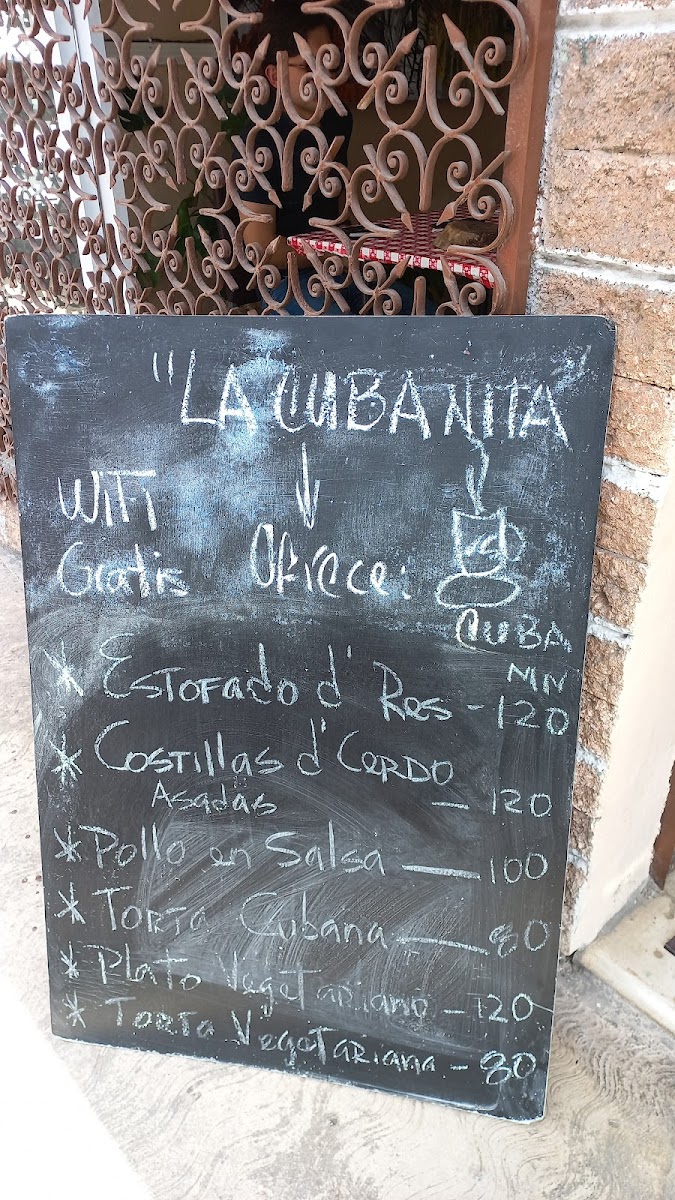 "LA CUBANITA"
WiFi
Gratis
Ofrece:
CUBA
MN
* Estofado d' Res - 120
* Costillas d' Cerdo
Asadas - 120
* Pollo en Salsa - 100
* Torta Cubana - 80
* Plato Vegetariano - 120
* Torta Vegetariana - 80